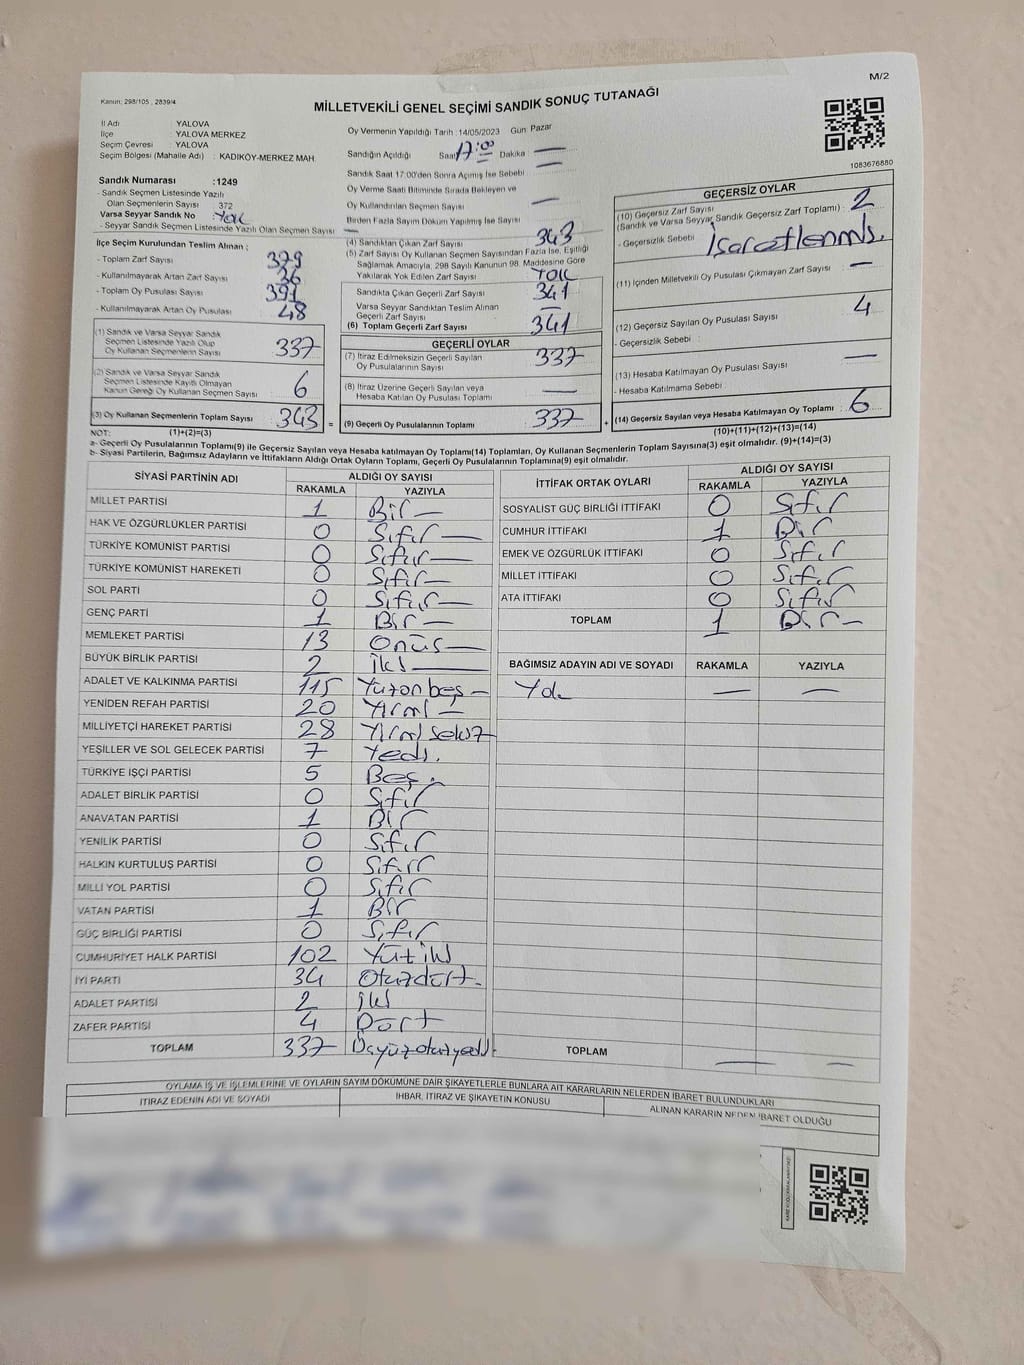 M/2
Kanun: 298/105 , 2839/4
MİLLETVEKİLİ GENEL SEÇİMİ SANDIK SONUÇ TUTANAĞI
İl Adı : YALOVA
İlçe : YALOVA MERKEZ
Seçim Çevresi : YALOVA
Seçim Bölgesi (Mahalle Adı) : KADIKÖY-MERKEZ MAH.
Sandık Numarası :1249
- Sandık Seçmen Listesinde Yazılı
Olan Seçmenlerin Sayısı : 372
Varsa Seyyar Sandık No : Yok
- Seyyar Sandık Seçmen Listesinde Yazılı Olan Seçmen Sayısı —
Oy Vermenin Yapıldığı Tarih :14/05/2023 Gün: Pazar
Sandığın Açıldığı Saat 17:00 Dakika : —
Sandık Saat 17:00'den Sonra Açımış İse Sebebi —
Oy Verme Saati Bitiminde Sırada Bekleyen ve
Oy Kullandırılan Seçmen Sayısı —
Birden Fazla Sayım Döküm Yapılmış İse Sayısı —
1083676880
İlçe Seçim Kurulundan Teslim Alınan ;
- Toplam Zarf Sayısı 379
- Kullanılmayarak Artan Zarf Sayısı 36
- Toplam Oy Pusulası Sayısı 391
- Kullanılmayarak Artan Oy Pusulası 48
(1) Sandık ve Varsa Seyyar Sandık
Seçmen Listesinde Yazılı Olup
Oy Kullanan Seçmenlerin Sayısı 337
(2) Sandık ve Varsa Seyyar Sandık
Seçmen Listesinde Kayıtlı Olmayan
Kanun Gereği Oy Kullanan Seçmen Sayısı 6
(3) Oy Kullanan Seçmenlerin Toplam Sayısı 343 =
(4) Sandıktan Çıkan Zarf Sayısı 343
(5) Zarf Sayısı Oy Kullanan Seçmen Sayısından Fazla İse, Eşitliği
Sağlamak Amacıyla, 298 Sayılı Kanunun 98. Maddesine Göre
Yakılarak Yok Edilen Zarf Sayısı YOK
Sandıkta Çıkan Geçerli Zarf Sayısı 341
Varsa Seyyar Sandıktan Teslim Alınan
Geçerli Zarf Sayısı —
(6) Toplam Geçerli Zarf Sayısı 341
GEÇERLİ OYLAR
(7) İtiraz Edilmeksizin Geçerli Sayılan
Oy Pusulalarının Sayısı 337
(8) İtiraz Üzerine Geçerli Sayılan veya
Hesaba Katılan Oy Pusulası Toplamı —
(9) Geçerli Oy Pusulalarının Toplamı 337 +
GEÇERSİZ OYLAR
(10) Geçersiz Zarf Sayısı
(Sandık ve Varsa Seyyar Sandık Geçersiz Zarf Toplamı) : 2
- Geçersizlik Sebebi : İşaretlenmiş.
(11) İçinden Milletvekili Oy Pusulası Çıkmayan Zarf Sayısı —
(12) Geçersiz Sayılan Oy Pusulası Sayısı 4
- Geçersizlik Sebebi :
(13) Hesaba Katılmayan Oy Pusulası Sayısı —
- Hesaba Katılmama Sebebi
(14) Geçersiz Sayılan veya Hesaba Katılmayan Oy Toplamı 6
NOT: (1)+(2)=(3) (10)+(11)+(12)+(13)=(14)
a- Geçerli Oy Pusulalarının Toplamı(9) ile Geçersiz Sayılan veya Hesaba katılmayan Oy Toplamı(14) Toplamları, Oy Kullanan Seçmenlerin Toplam Sayısına(3) eşit olmalıdır. (9)+(14)=(3)
b- Siyasi Partilerin, Bağımsız Adayların ve İttifakların Aldığı Ortak Oyların Toplamı, Geçerli Oy Pusulalarının Toplamına(9) eşit olmalıdır.
SİYASİ PARTİNİN ADI ALDIĞI OY SAYISI
RAKAMLA YAZIYLA
MİLLET PARTİSİ 1 Bir —
HAK VE ÖZGÜRLÜKLER PARTİSİ 0 Sıfır —
TÜRKİYE KOMÜNİST PARTİSİ 0 Sıfır —
TÜRKİYE KOMÜNİST HAREKETİ 0 Sıfır —
SOL PARTİ 0 Sıfır —
GENÇ PARTİ 1 Bir —
MEMLEKET PARTİSİ 13 Onüç —
BÜYÜK BİRLİK PARTİSİ 2 İki —
ADALET VE KALKINMA PARTİSİ 115 Yüzonbeş —
YENİDEN REFAH PARTİSİ 20 Yirmi —
MİLLİYETÇİ HAREKET PARTİSİ 28 Yirmi sekiz
YEŞİLLER VE SOL GELECEK PARTİSİ 7 Yedi.
TÜRKİYE İŞÇİ PARTİSİ 5 Beş.
ADALET BİRLİK PARTİSİ 0 Sıfır
ANAVATAN PARTİSİ 1 Bir
YENİLİK PARTİSİ 0 Sıfır
HALKIN KURTULUŞ PARTİSİ 0 Sıfır
MİLLİ YOL PARTİSİ 0 Sıfır
VATAN PARTİSİ 1 Bir
GÜÇ BİRLİĞİ PARTİSİ 0 Sıfır
CUMHURİYET HALK PARTİSİ 102 Yüz iki
İYİ PARTİ 34 Otuzdört.
ADALET PARTİSİ 2 İki
ZAFER PARTİSİ 4 Dört
TOPLAM 337 Üçyüzotuzyedi.
İTTİFAK ORTAK OYLARI ALDIĞI OY SAYISI
RAKAMLA YAZIYLA
SOSYALİST GÜÇ BİRLİĞİ İTTİFAKI 0 Sıfır
CUMHUR İTTİFAKI 1 Bir
EMEK VE ÖZGÜRLÜK İTTİFAKI 0 Sıfır
MİLLET İTTİFAKI 0 Sıfır
ATA İTTİFAKI 0 Sıfır
TOPLAM 1 Bir —
BAĞIMSIZ ADAYIN ADI VE SOYADI RAKAMLA YAZIYLA
Yok — —
TOPLAM — —
OYLAMA İŞ VE İŞLEMLERİNE VE OYLARIN SAYIM DÖKÜMÜNE DAİR ŞİKAYETLERLE BUNLARA AİT KARARLARIN NELERDEN İBARET BULUNDUKLARI
İTİRAZ EDENİN ADI VE SOYADI İHBAR, İTİRAZ VE ŞİKAYETİN KONUSU ALINAN KARARIN NEDEN İBARET OLDUĞU